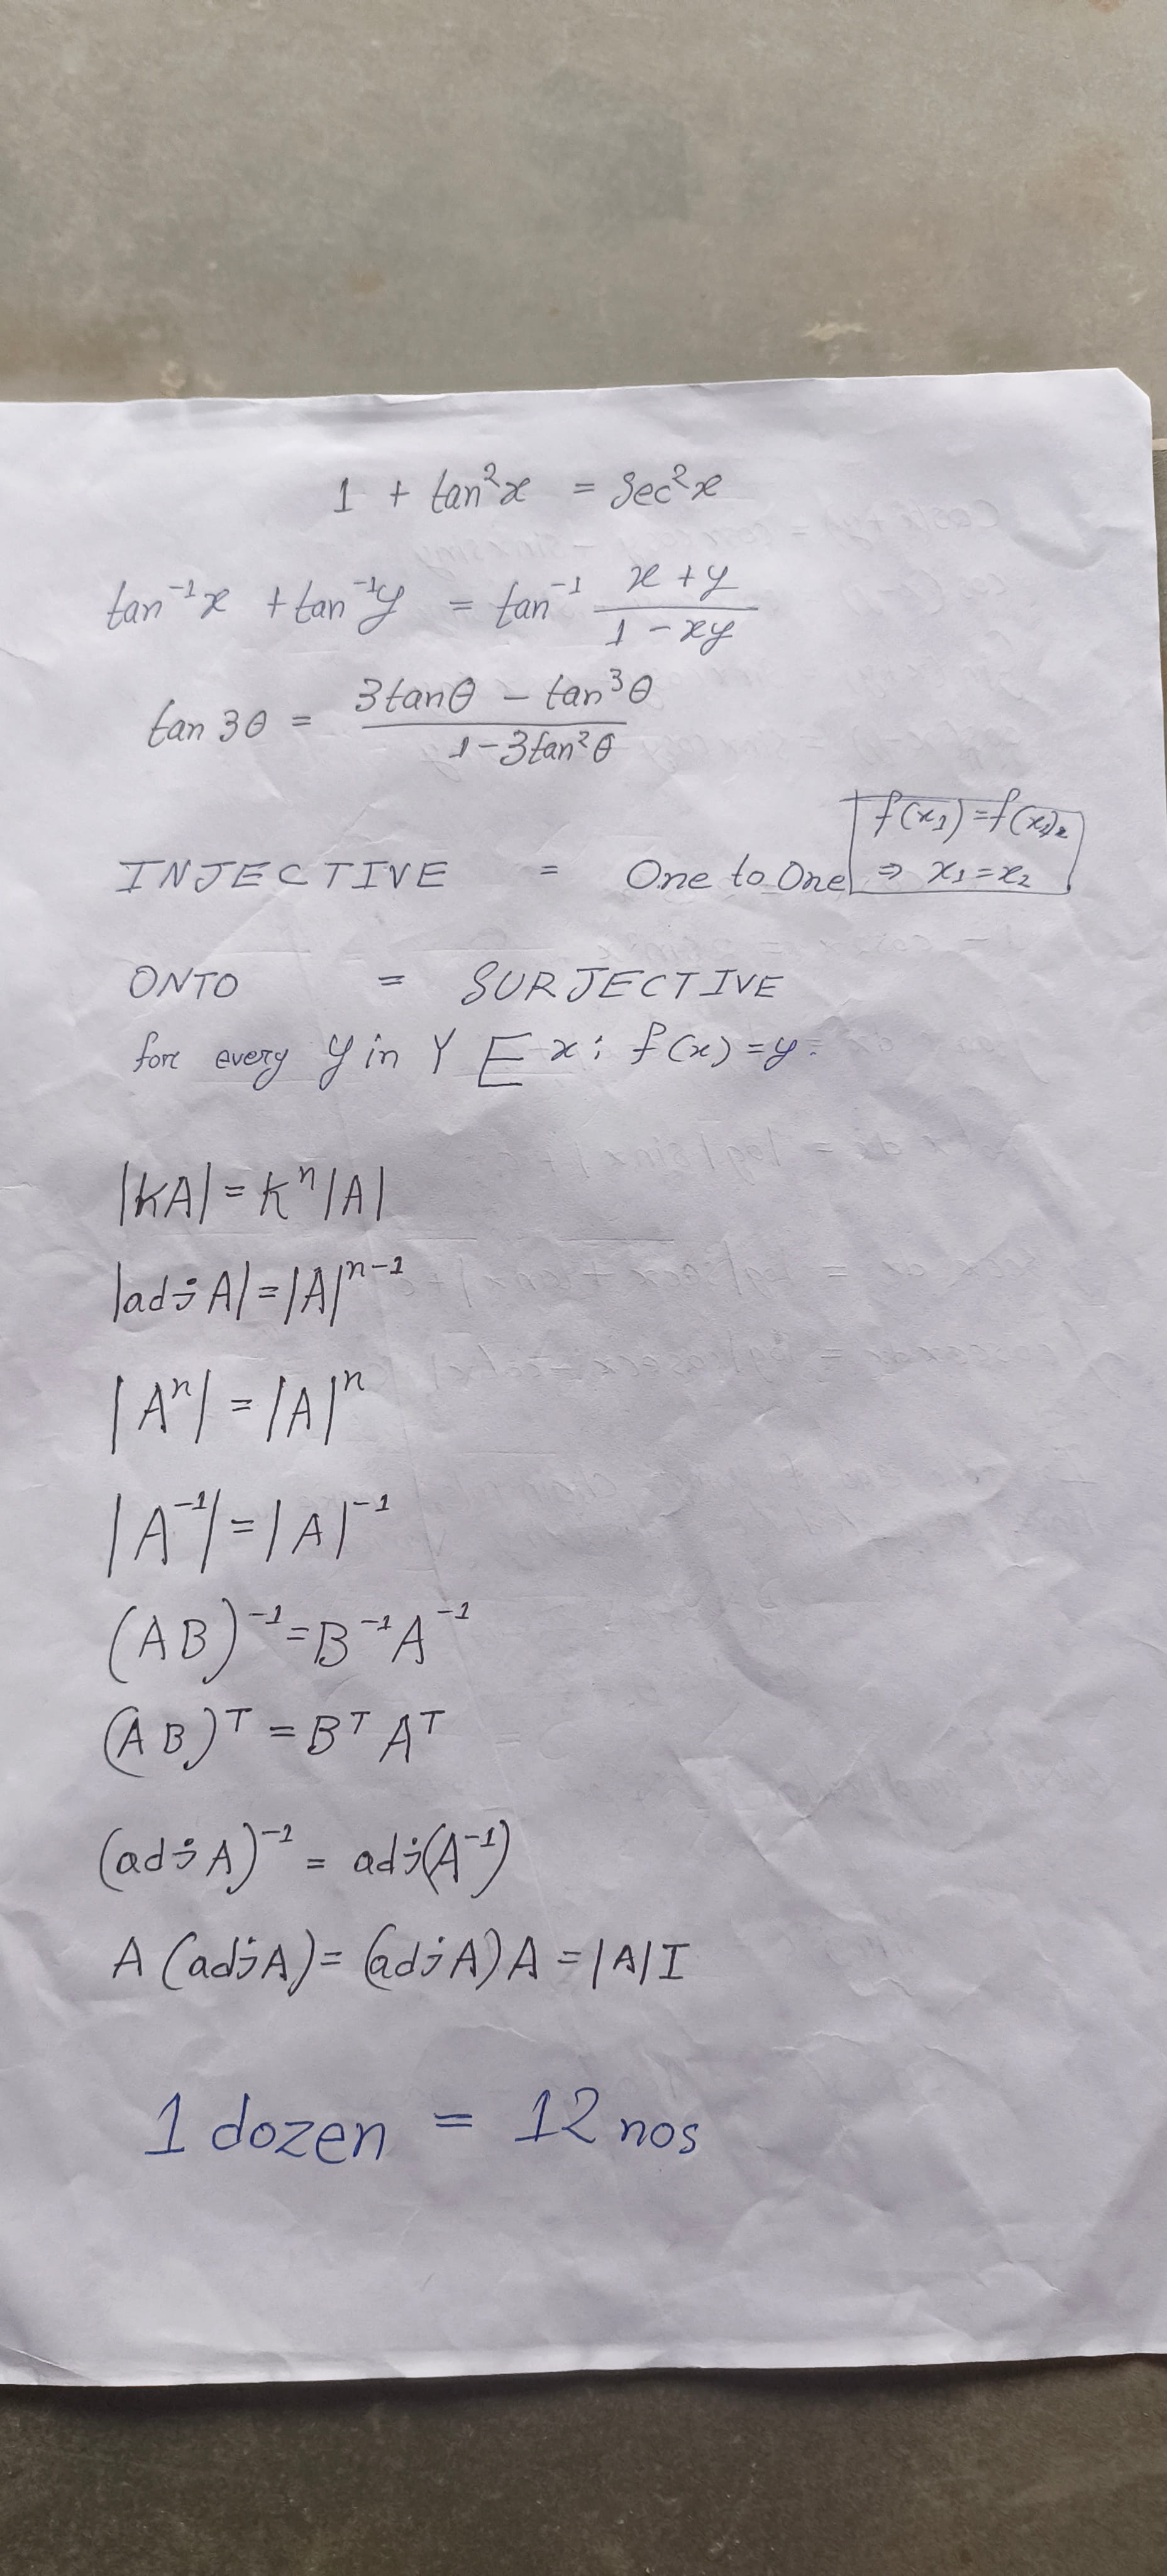 1 + tan²x = Sec²x
tan⁻¹x + tan⁻¹y = tan⁻¹ (x + y)/(1 - xy)
tan 3θ = (3tanθ - tan³θ)/(1 - 3tan²θ)
f(x₁) = f(x₂)
INJECTIVE = One to One ⇒ x₁ = x₂
ONTO = SURJECTIVE
for every y in Y E x : f(x) = y
|KA| = Kⁿ|A|
|adj A| = |A|ⁿ⁻¹
|Aⁿ| = |A|ⁿ
|A⁻¹| = |A|⁻¹
(AB)⁻¹ = B⁻¹A⁻¹
(AB)ᵀ = Bᵀ Aᵀ
(adj A)⁻¹ = adj(A⁻¹)
A (adj A) = (adj A) A = |A| I
1 dozen = 12 nos